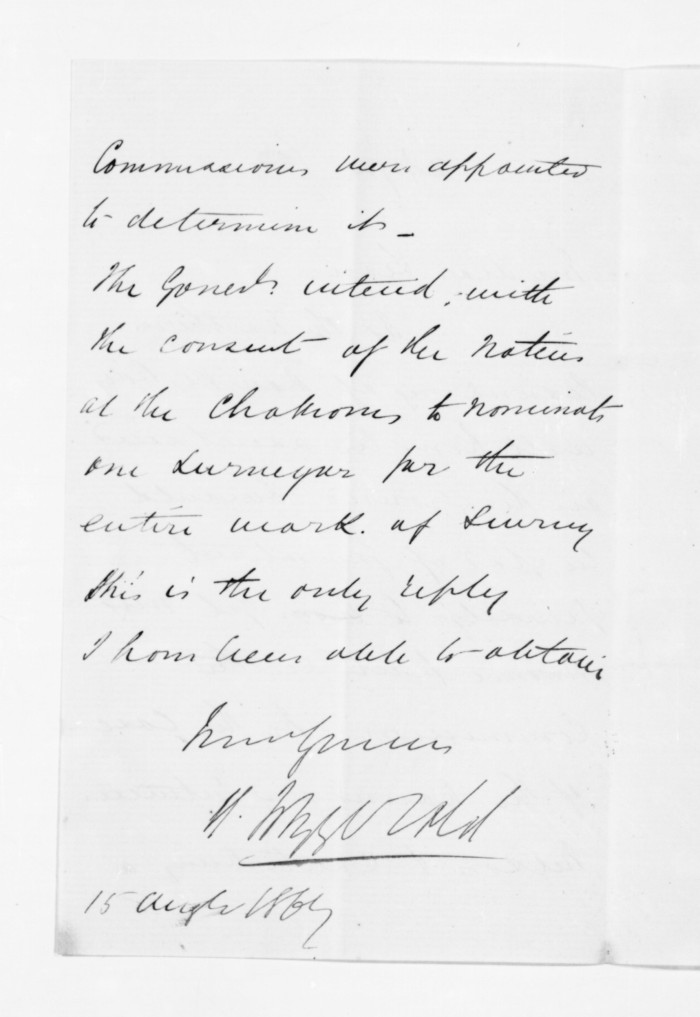 Commissioners were appointed
to determine it –
The Governt. intend, with
the consent of the Natives
at the Chathams to nominate
one Surveyor for the
entire work. of Survey
This is the only reply
I have been able to obtain
Yours
W. Fitzgerald
15 Augt 1867